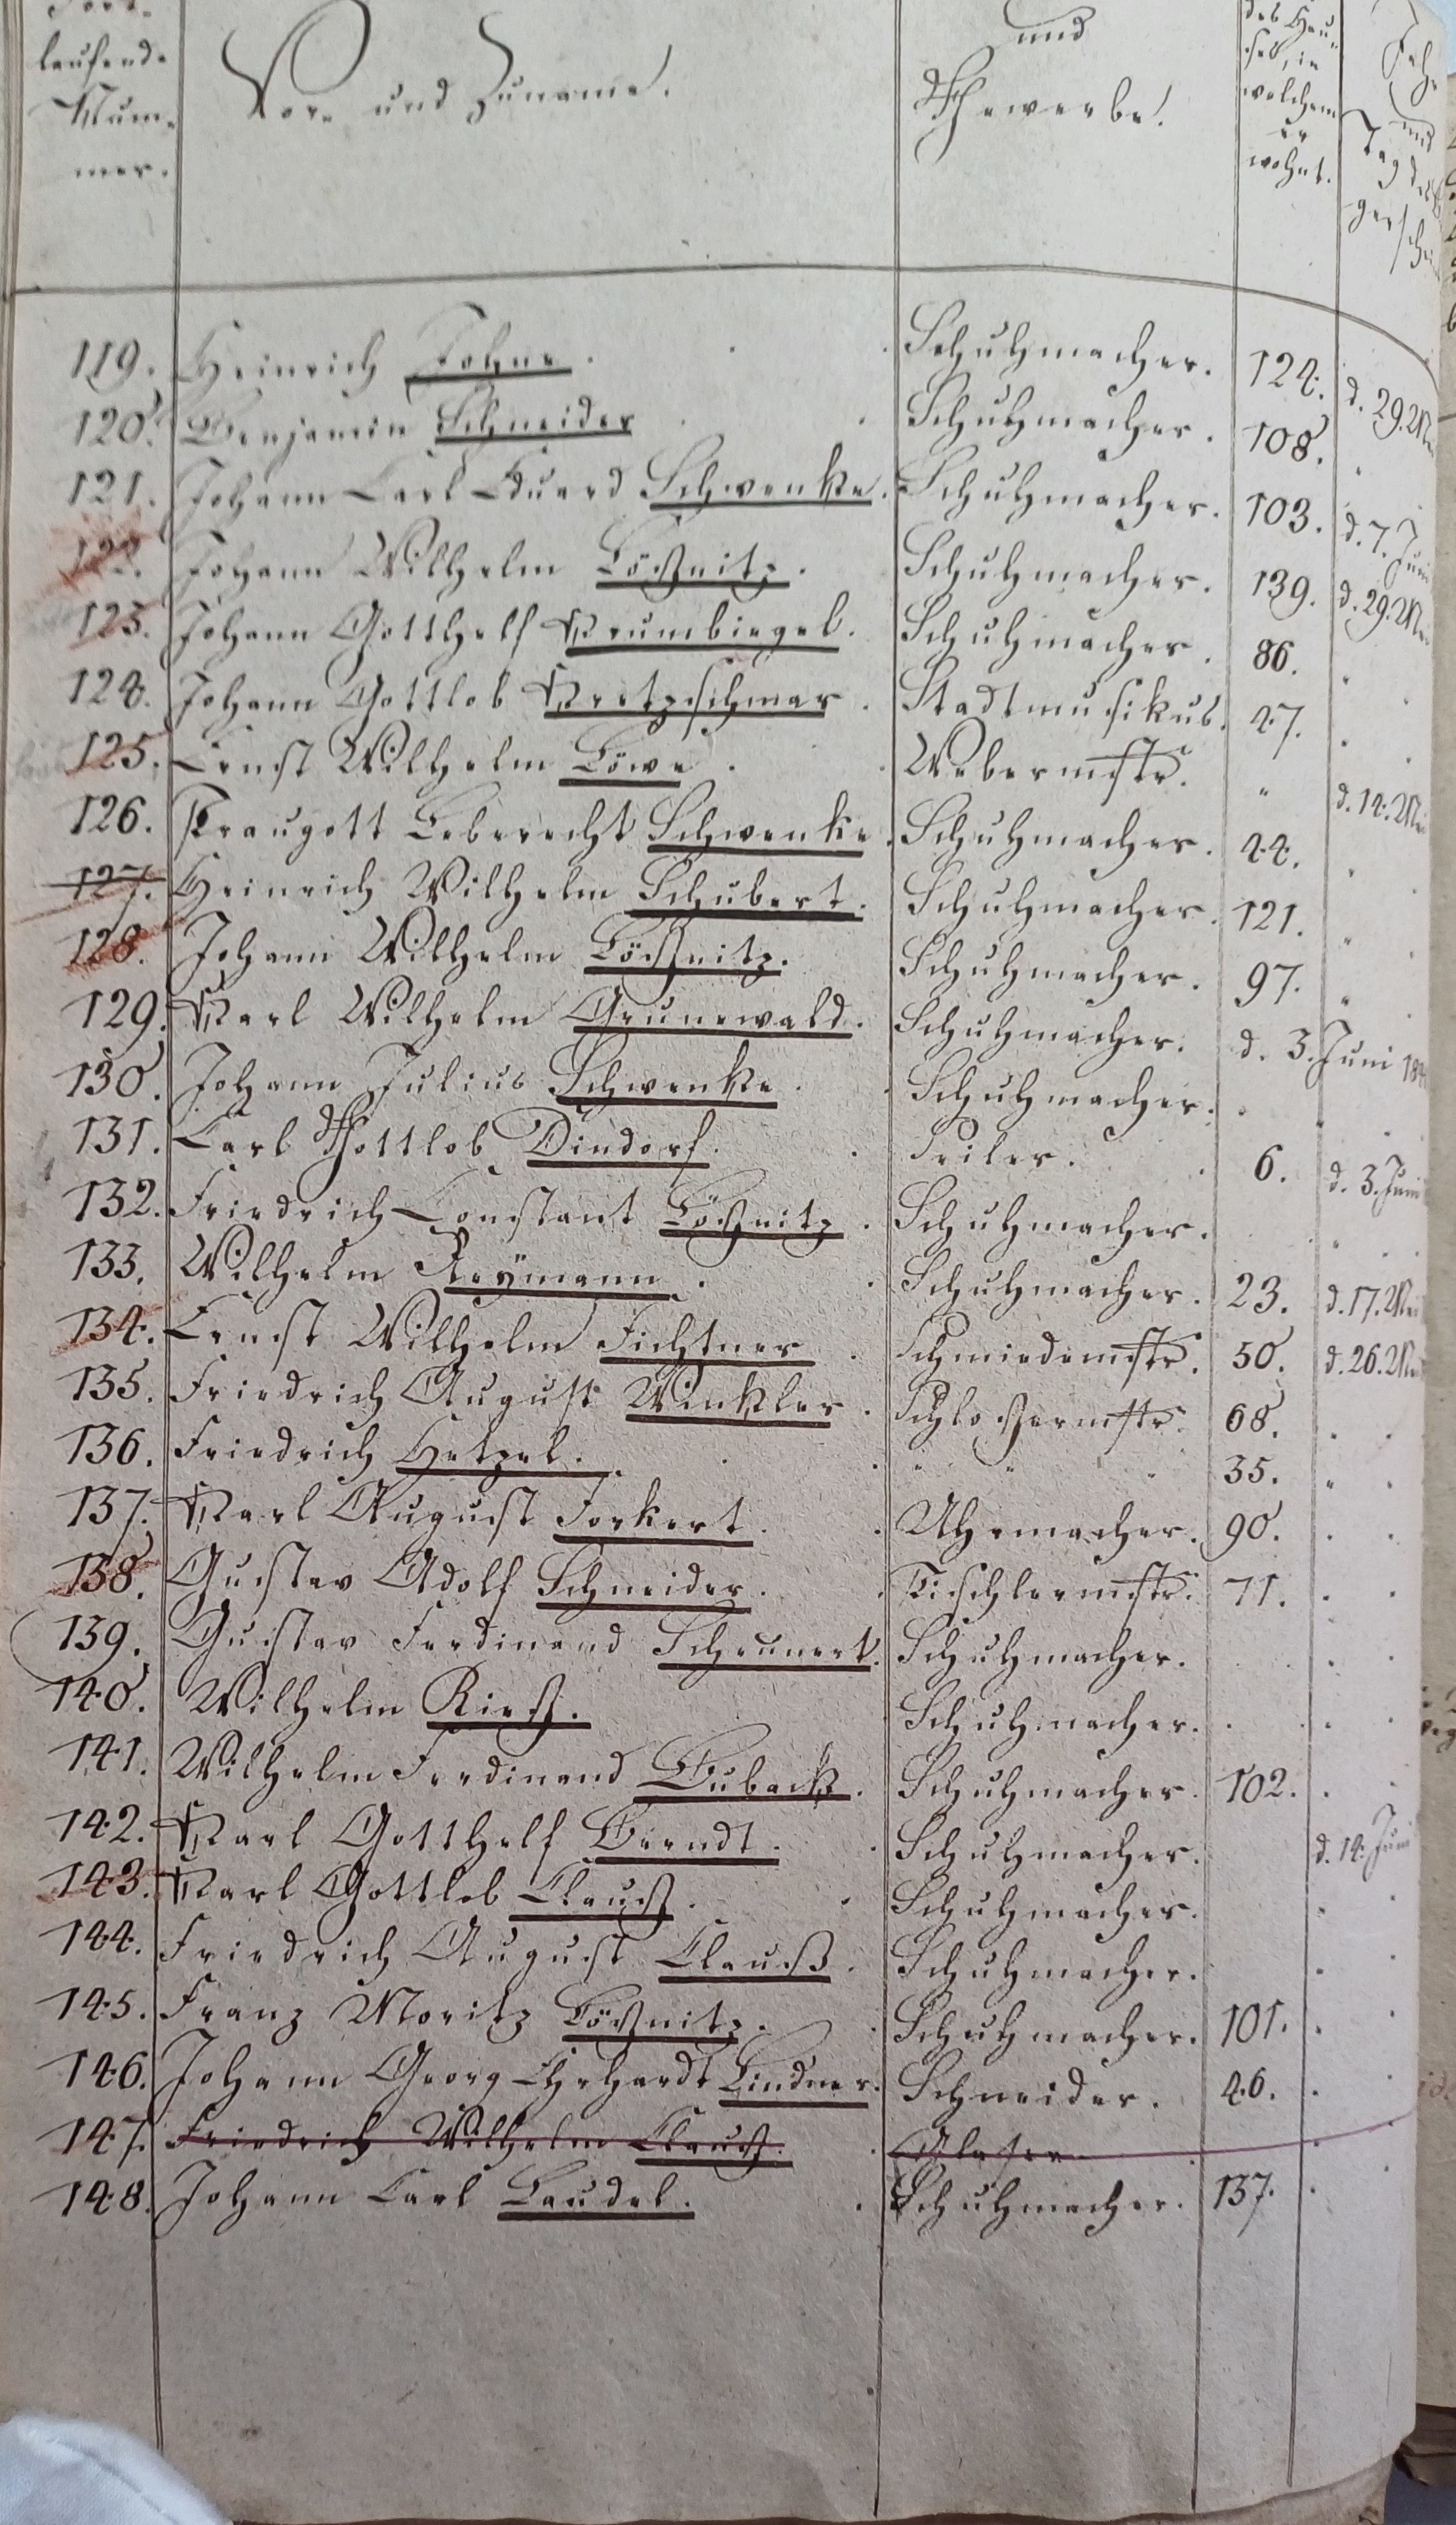 Fort-
laufende
Num-
mer.
Vor- und Zuname.
und
Gewerbe.
des Hau-
ses, in
welchem
er
wohnt.
und
Tag des
119. Heinrich Johne. Schuhmacher. 124. d. 29. Mai
120. Benjamin Schneider Schuhmacher. 108. "
121. Johann Carl Eduard Schwenke. Schuhmacher. 103. d. 7. Juni
122. Johann Wilhelm Lößnitz. Schuhmacher. 139. d. 29. Mai
123. Johann Gotthelf Krumbiegel. Schuhmacher. 86. "
124. Johann Gottlob Kretzschmar. Stadtmusikus. 47. "
125. Ernst Wilhelm Löwe. Webermstr. " d. 14. Mai
126. Traugott Leberecht Schwenke. Schuhmacher. 44. "
127. Heinrich Wilhelm Schubert. Schuhmacher. 121. "
128. Johann Wilhelm Lößnitz. Schuhmacher. 97. "
129. Karl Wilhelm Grunewald. Schuhmacher. d. 3. Juni
130. Johann Julius Schwenke. Schuhmacher.
131. Carl Gottlob Dindorf. Seiler. 6. d. 3. Juni
132. Friedrich Constant Lößnitz. Schuhmacher. "
133. Wilhelm Reymann. Schuhmacher. 23. d. 17. Mai
134. Ernst Wilhelm Fichtner. Schmiedemstr. 50. d. 26. Mai
135. Friedrich August Winkler. Schloßermstr. 68. "
136. Friedrich Hetzel. " " " 35. "
137. Karl August Jorkert. Uhrmacher. 90. "
138. Gustav Adolf Schneider. Tischlermstr. 71. "
139. Gustav Ferdinand Scheunert. Schuhmacher. "
140. Wilhelm Rieß. Schuhmacher. "
141. Wilhelm Ferdinand Duback. Schuhmacher. 102. "
142. Karl Gotthelf Berndt. Schuhmacher. d. 14. Juni
143. Karl Gottlob Clauß. Schuhmacher. "
144. Friedrich August Clauß. Schuhmacher. "
145. Franz Moritz Lößnitz. Schuhmacher. 101. "
146. Johann Georg Ehrhardt Lindner. Schneider. 46. "
147. Friedrich Wilhelm Clauß. Glaser. "
148. Johann Carl Laudel. Schuhmacher. 137. "